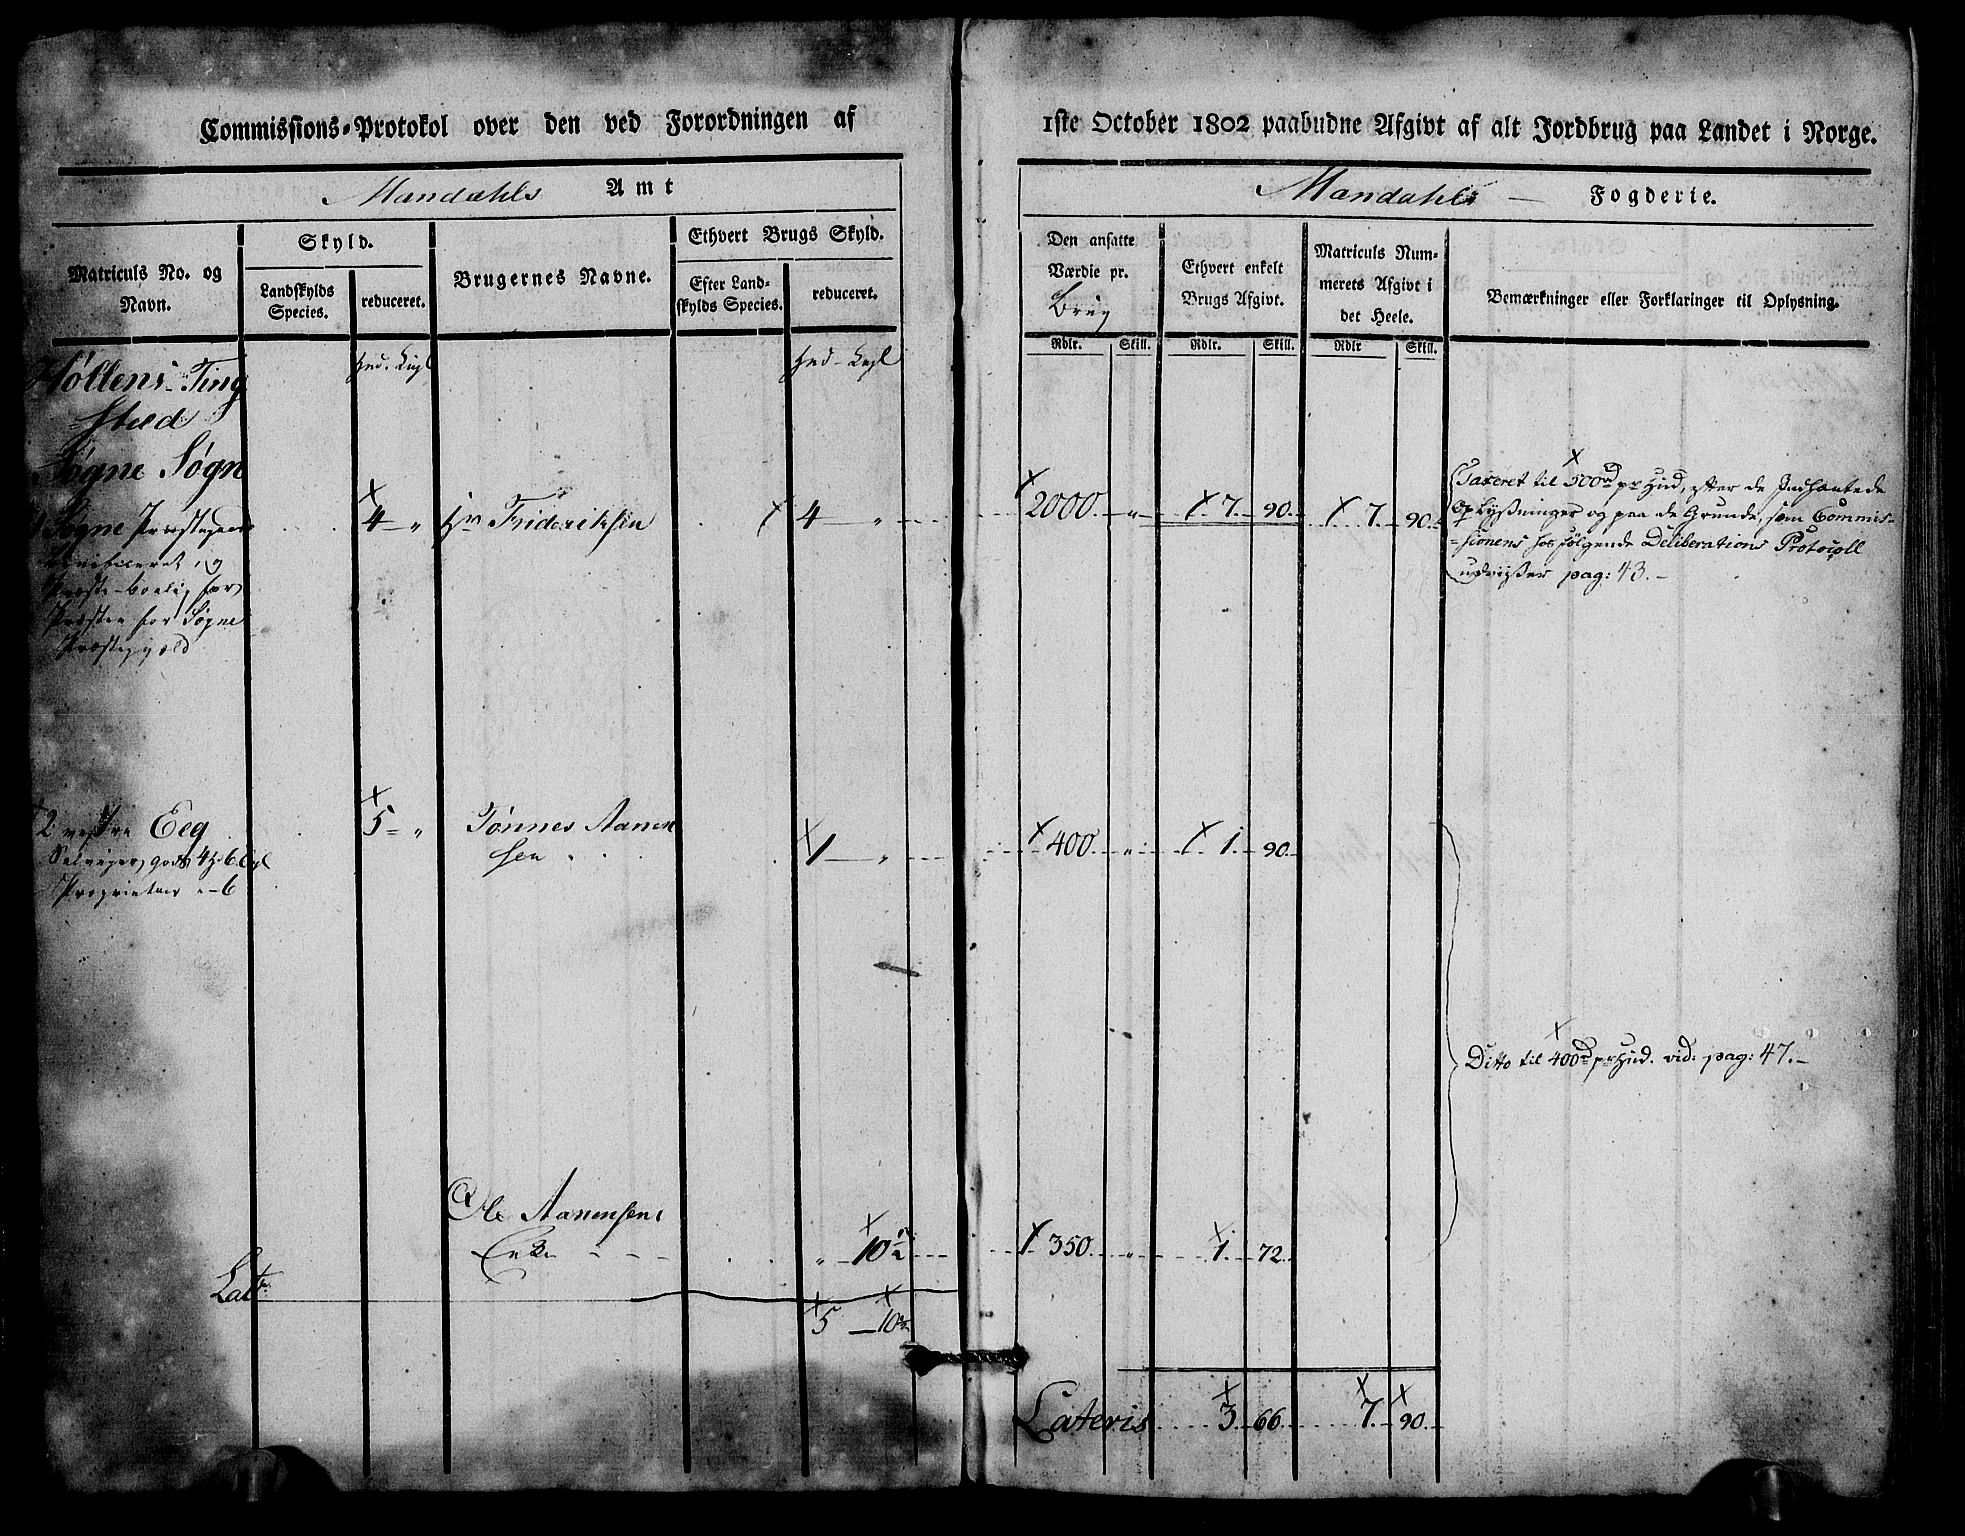 Commissions-Protokol over den ved Forordningen af
Mandahls Amt
Matriculs No. og
Navn.
Skyld.
Landskylds
Species.
reduceret.
Brugernes Navne.
Ethvert Brugs Skyld.
Efter Land-
skylds Species.
reduceret.
Høllens Ting
sted
Hud. Kagl
Hud - Kagl
Søgne Søgn
1 Søgne Præstegaard
4 - "
Hr Frideriksen
4 - "
Beneficeret, og
Præste-boelig for
Præsten for Søgne
Præstegield
2 vestre Eeg
5 - "
Tønnes Aanen
sen
1 - "
Selveier gods 4 H 6 Kgl
Proprietær " - 6
Ole Aanensens
Enke - - -
" - 10½
Latr
5 - 10½
1ste October 1802 paabudne Afgivt af alt Jordbrug paa Landet i Norge.
Mandahls - Fogderie.
Den ansatte
Værdie pr.
Brug
Rdlr. Skill.
Ethvert enkelt
Brugs Afgivt.
Rdlr. Skill.
Matriculs Num-
merets Afgivt i
det Heele.
Rdlr Skill.
Bemærkninger eller Forklaringer til Oplysning.
2000 - " - 7 - 90 - 7 - 90
Taxeret til 500rd pr Hud, efter de Indhentede
Oplysninger og paa de Grunde, som Commis-
sionens hosfølgende Deliberations Protocoll
udviser pag: 43. -
400 - " - 1 - 90
Ditto til 400rd pr Hud. vid: pag: 47. -
350 - " - 1 - 72
Lateris 3 - 66 7 - 90